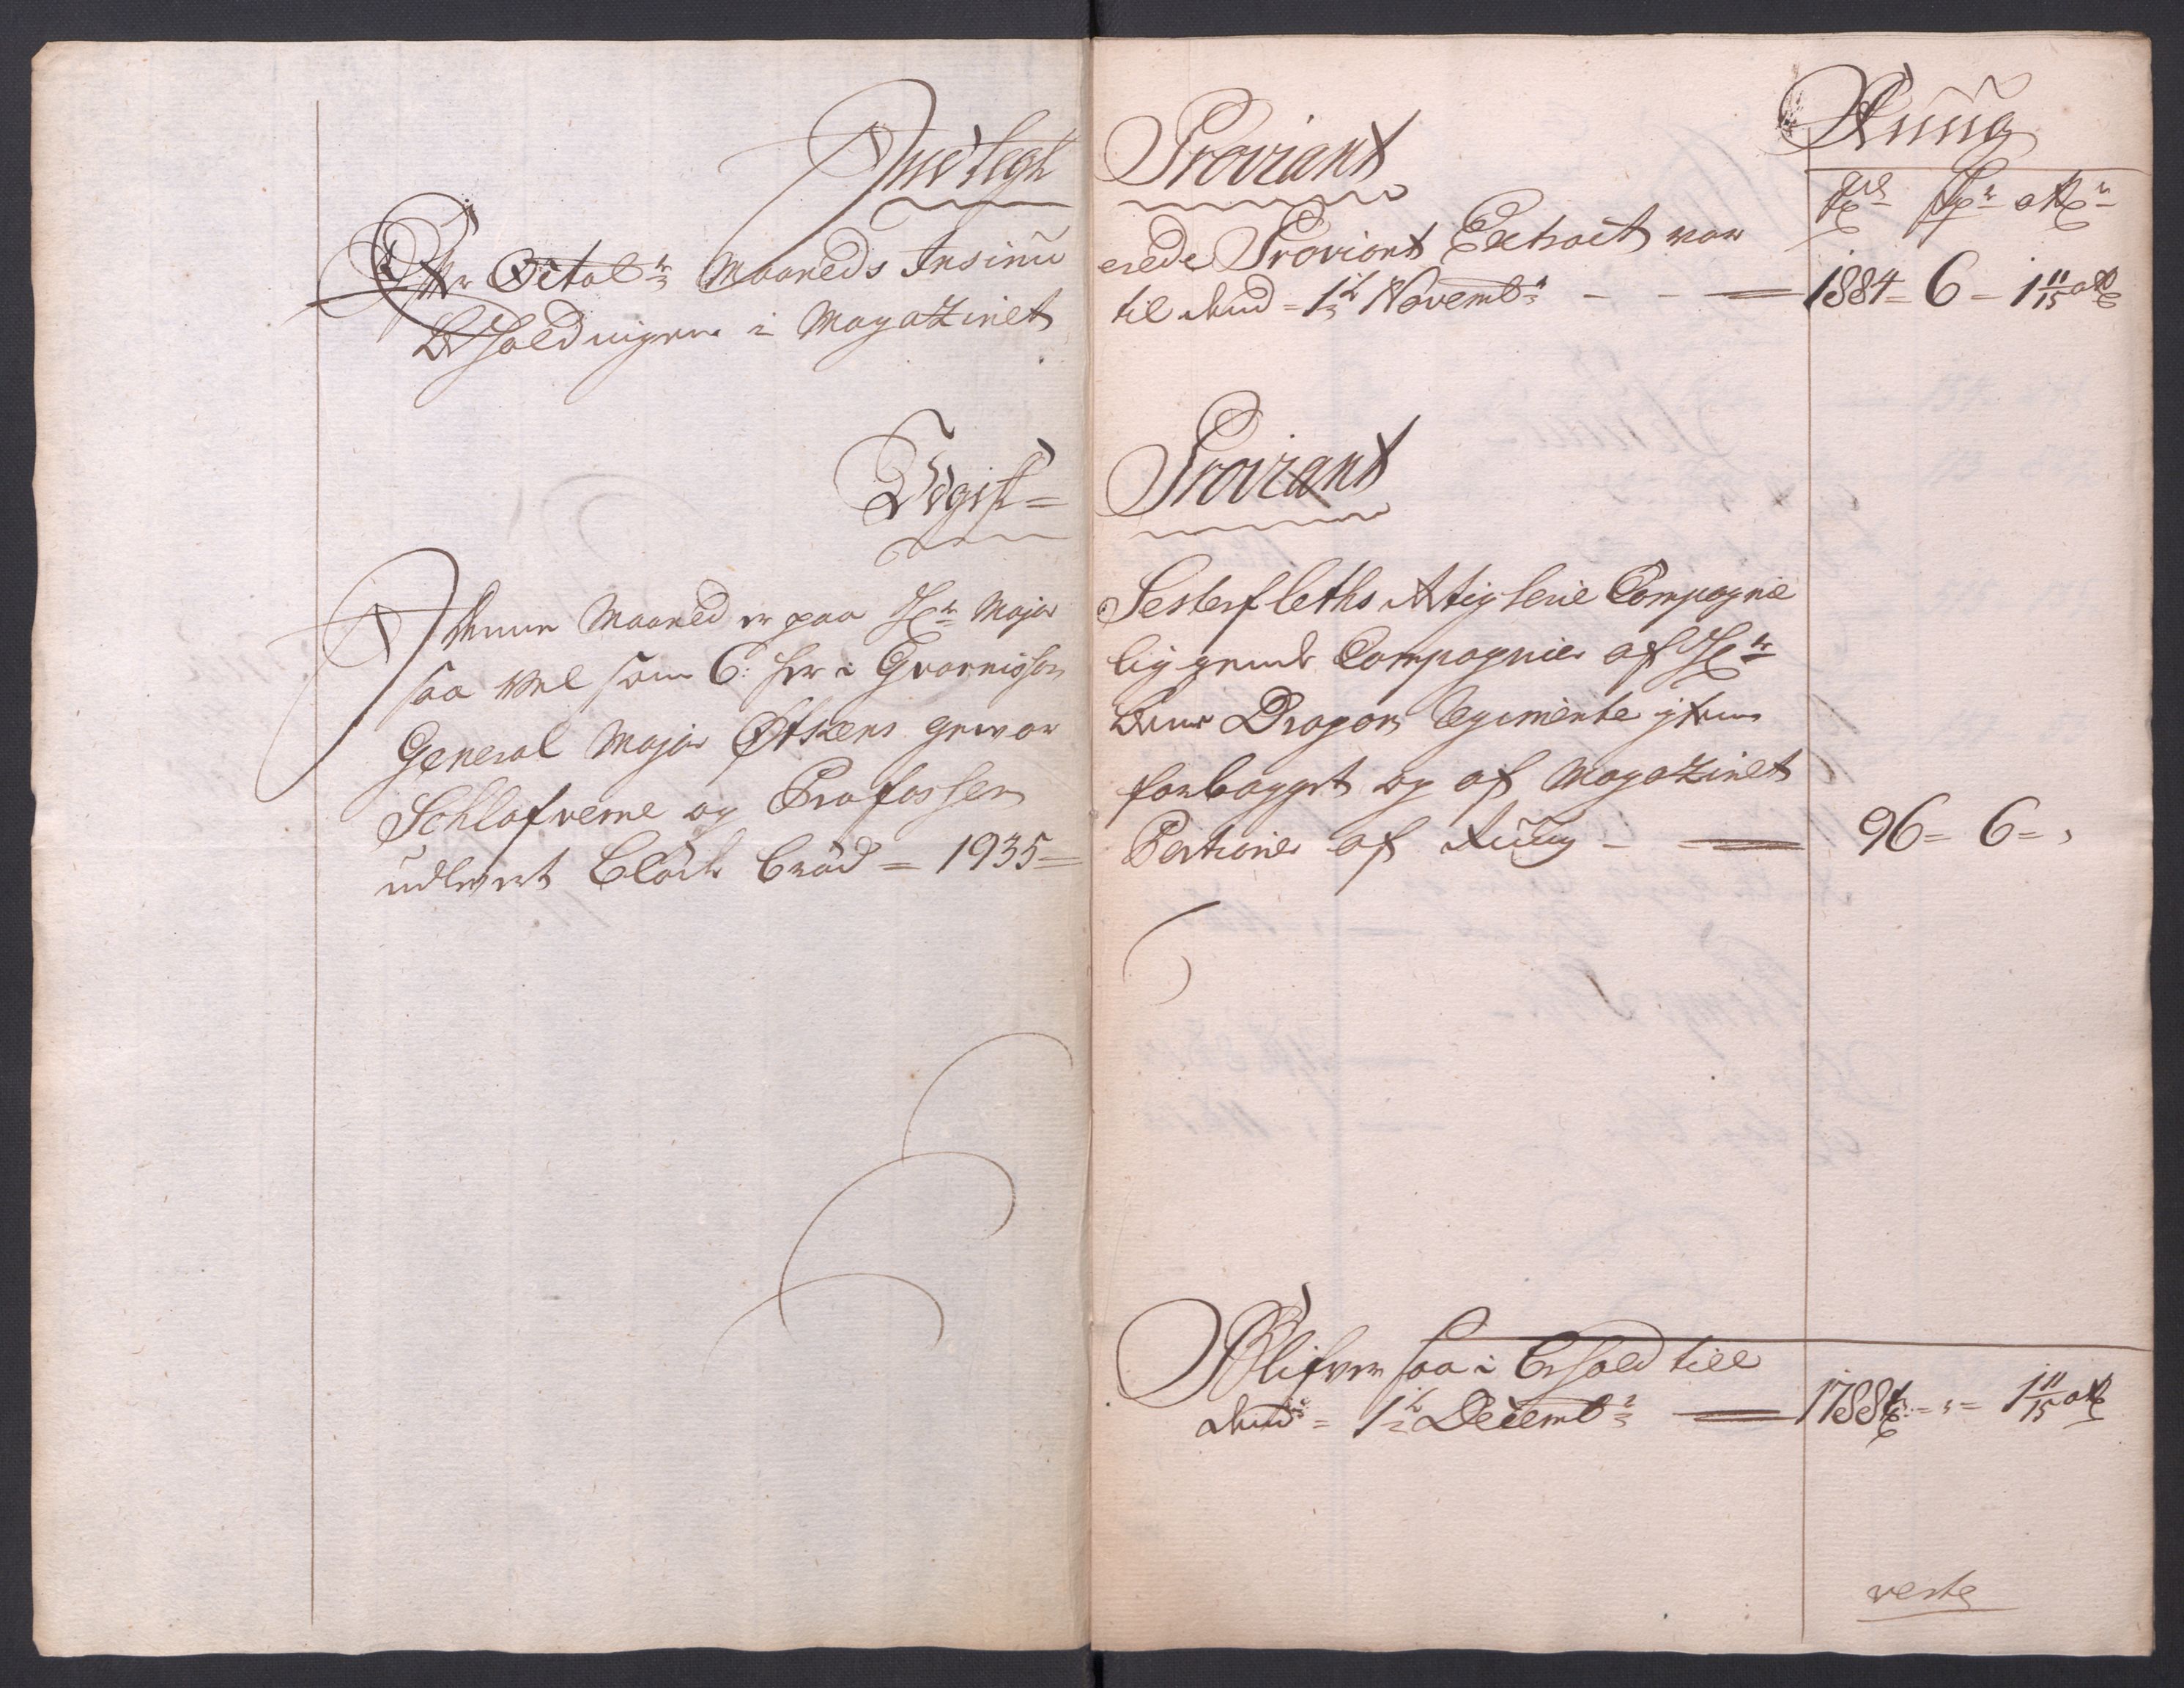 Indtegt Proviant
Rüug
Tdr Skpr Mkr
Efter Octobr Maaneds Insinü erede Proviant Extract var
Beholdningen i Magazinet til den 1te Novembr - - 1884 = 6 = 1 11/15 Mk
Udgift = Proviant
I denne Maaned er paa Hr Major Sesterfleths Artiglerie Compagnie
saa vel som 6: her i Gvarnisson liggende Compagnier af Hr
General Major Øtkens gevor bene Dragon Regimente item
Schlafverne og Profossen forbagget og af Magazinet
udlevert Cläde bröd = 1935 = Portioner af Rüug - 96 = 6 = ,
Blifver saa i behold till
den = 1te Decembr 1788 tr = , = 1 11/15 Mk
reste